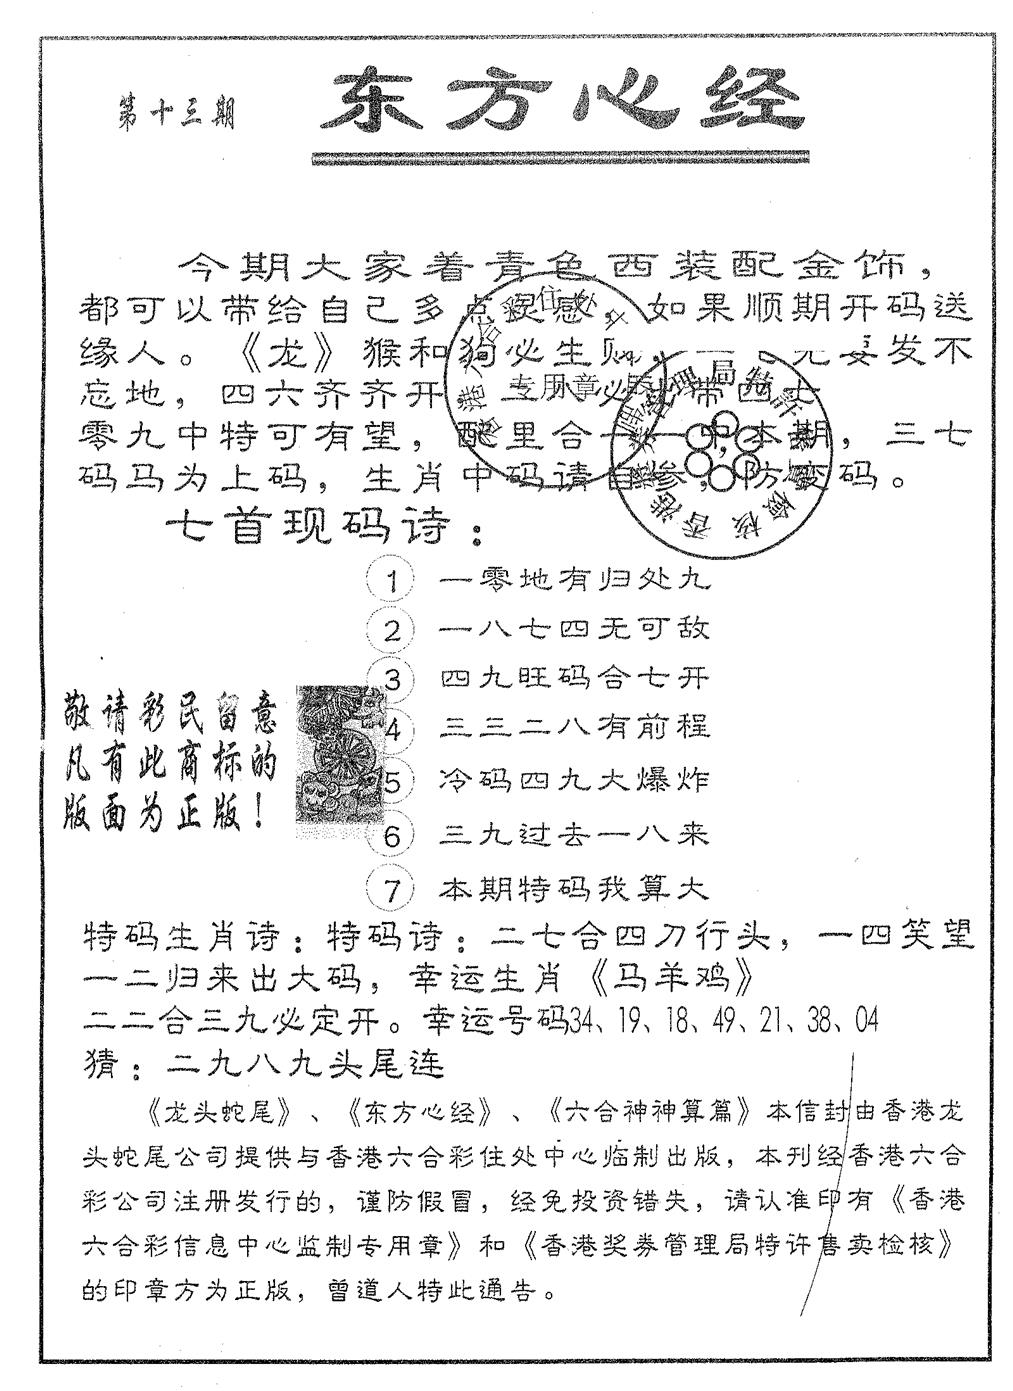 第十三期
东方心经
今期大家着青色西装配金饰，
都可以带给自己多点 感 如果顺期开码送
缘人。《龙》猴和狗必生 发不
忘地，四六齐齐开 必 带四
零九中特可有望，配里合一 中本期，三七
码马为上码，生肖中码请自参，防变码。
七首现码诗：
1 一零地有归处九
2 一八七四无可敌
3 四九旺码合七开
4 三三二八有前程
5 冷码四九大爆炸
6 三九过去一八来
7 本期特码我算大
敬请彩民留意
凡有此商标的
版面为正版！
特码生肖诗：特码诗：二七合四刀行头，一四笑望
一二归来出大码，幸运生肖《马羊鸡》
二二合三九必定开。幸运号码34、19、18、49、21、38、04
猜：二九八九头尾连
《龙头蛇尾》、《东方心经》、《六合神神算篇》本信封由香港龙
头蛇尾公司提供与香港六合彩住处中心临制出版，本刊经香港六合
彩公司注册发行的，谨防假冒，经免投资错失，请认准印有《香港
六合彩信息中心监制专用章》和《香港奖券管理局特许售卖检核》
的印章方为正版，曾道人特此通告。
专用章